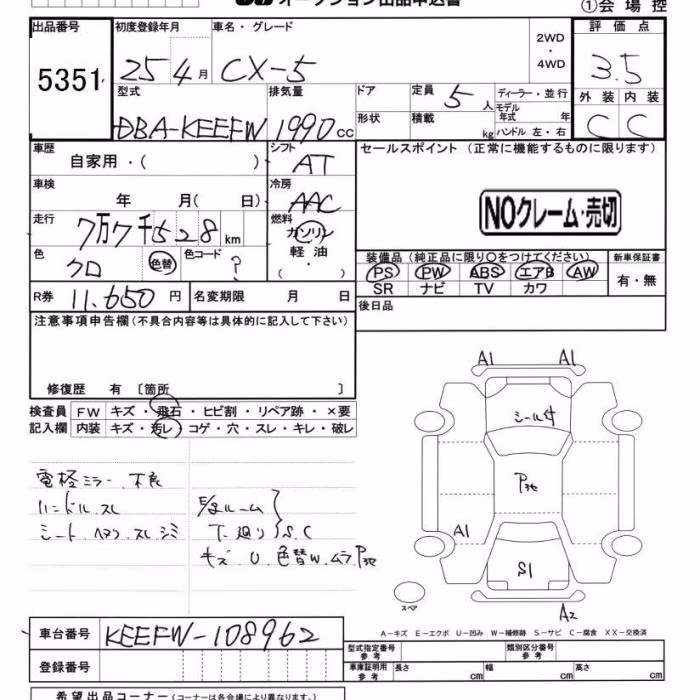 オークション出品申込書
①会場控
出品番号 初度登録年月 車名・グレード 2WD・4WD 評価点
5351 25 4月 CX-5 3.5
型式 排気量 ドア 定員 5人 ディーラー・並行 外装 内装
DBA-KEEFW 1990cc 形状 積載 kg モデル年式 年 ハンドル 左・右 C C
車歴 自家用・( ) シフト AT セールスポイント (正常に機能するものに限ります)
車検 年 月( 日) 冷房 AAC
NOクレーム・売切
走行 7万7千528km 燃料 ガソリン・軽油・( )
色 クロ 色替 色コード ?
装備品 (純正品に限り○をつけてください) 新車保証書
PS PW ABS エアB AW 有・無
SR ナビ TV カワ
R券 11.650円 名変期限 月 日 後日品
注意事項申告欄 (不具合内容等は具体的に記入して下さい)
修復歴 有 〔箇所 〕
検査員 FW キズ・飛石・ヒビ割・リペア跡・×要
記入欄 内装 キズ・汚レ・コゲ・穴・スレ・キレ・破レ
電格ミラー不良
ハンドルスレ
シート ヘタリ スレ シミ
下廻り S.C
キズ.U.色替W.ムラ
A1 A1
A1
S1
A2
スペア
A-キズ E-エクボ U-凹み W-補修跡 S-サビ C-腐食 XX-交換済
車台番号 KEEFW-108962
登録番号
型式指定番号 参考 類別区分番号 参考
車庫証明用 参考 長さ cm 幅 cm 高さ cm
希望出品コーナー (コーナーは各会場により異なります。)